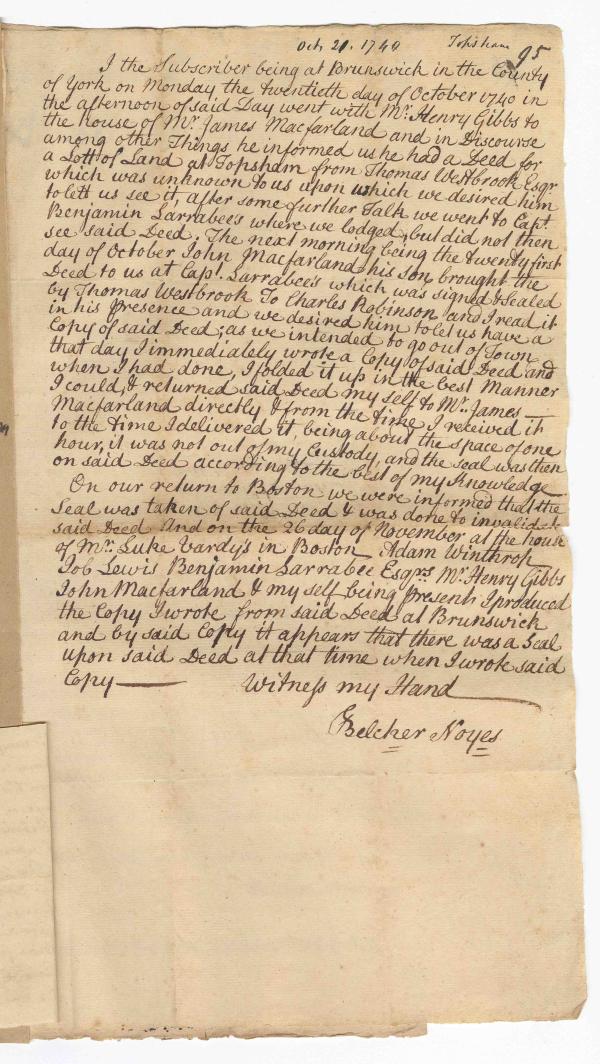 Oct. 21. 1740 Topsham 95
I the Subscriber being at Brunswick in the County
of York on Monday the twentieth day of October 1740 in
the afternoon of said Day went with Mr. Henry Gibbs to
the house of Mr. James Macfarland and in Discourse
among other Things he informed us he had a Deed for
a Lott of Land at Topsham from Thomas Westbrook Esqr
which was unknown to us upon which we desired him
to lett us see it, after some further Talk we went to Capt.
Benjamin Larrabee's where we lodged, but did not then
see said Deed. The next morning being the twenty first
day of October John Macfarland his Son brought the
Deed to us at Capt. Larrabee's which was signed & Sealed
by Thomas Westbrook To Charles Robinson and I read it
in his Presence and we desired him to let us have a
Copy of said Deed; as we intended to go out of Town
that day I immediately wrote a Copy of said Deed and
when I had done, I folded it up in the best Manner
I could, & returned said Deed my self to Mr. James
Macfarland directly & from the time I received it
to the time I delivered it, being about the space of one
hour, it was not out of my Custody, and the Seal was then
on said Deed according to the best of my Knowledge
On our return to Boston we were informed that the
Seal was taken of said Deed & was done to invalid
said Deed And on the 26 day of November at the house
of Mr. Luke Vardy's in Boston Adam Winthrop
Job Lewis Benjamin Larrabee Esqrs. Mr. Henry Gibbs
John Macfarland & my self being Present I produced
the Copy I wrote from said Deed at Brunswick
and by said Copy it appears that there was a Seal
upon said Deed at that time when I wrote said
Copy — Witness my Hand
Belcher Noyes